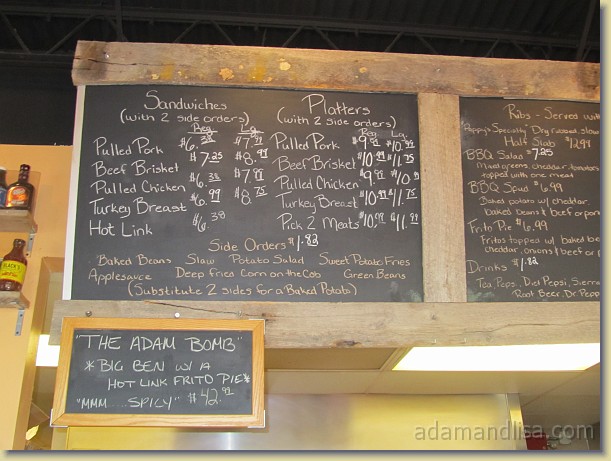 Sandwiches
(with 2 side orders)
Reg. Lg.
Pulled Pork $6.38 $7.99
Beef Brisket $7.25 $8.99
Pulled Chicken $6.38 $7.99
Turkey Breast $6.99 $8.75
Hot Link $6.38
Platters
(with 2 side orders)
Reg. Lg.
Pulled Pork $9.99 $10.99
Beef Brisket $10.99 $11.75
Pulled Chicken $9.99 $10.99
Turkey Breast $10.99 $11.75
Pick 2 Meats $10.99 $11.99
Side Orders $1.82
Baked Beans Slaw Potato Salad Sweet Potato Fries
Applesauce Deep fried Corn on the Cob Green Beans
(Substitute 2 sides for a Baked Potato)
Ribs - Served with
Pappy's Specialty Dry rubbed, slow
Half Slab 12.99
BBQ Salad $7.25
Mixed greens, cheddar, tomatoes
topped with one meat
BBQ Spud $6.99
Baked potato w/ cheddar,
baked beans & beef or por
Frito Pie $6.99
Fritos topped w/ baked be
cheddar, onions & beef or
Drinks $1.82
Tea, Pepsi, Diet Pepsi, Sierra
Root Beer, Dr. Pepp
"THE ADAM BOMB"
*BIG BEN W/ A
HOT LINK FRITO PIE*
"MMM....SPICY" $42.99
adamandlisa.com